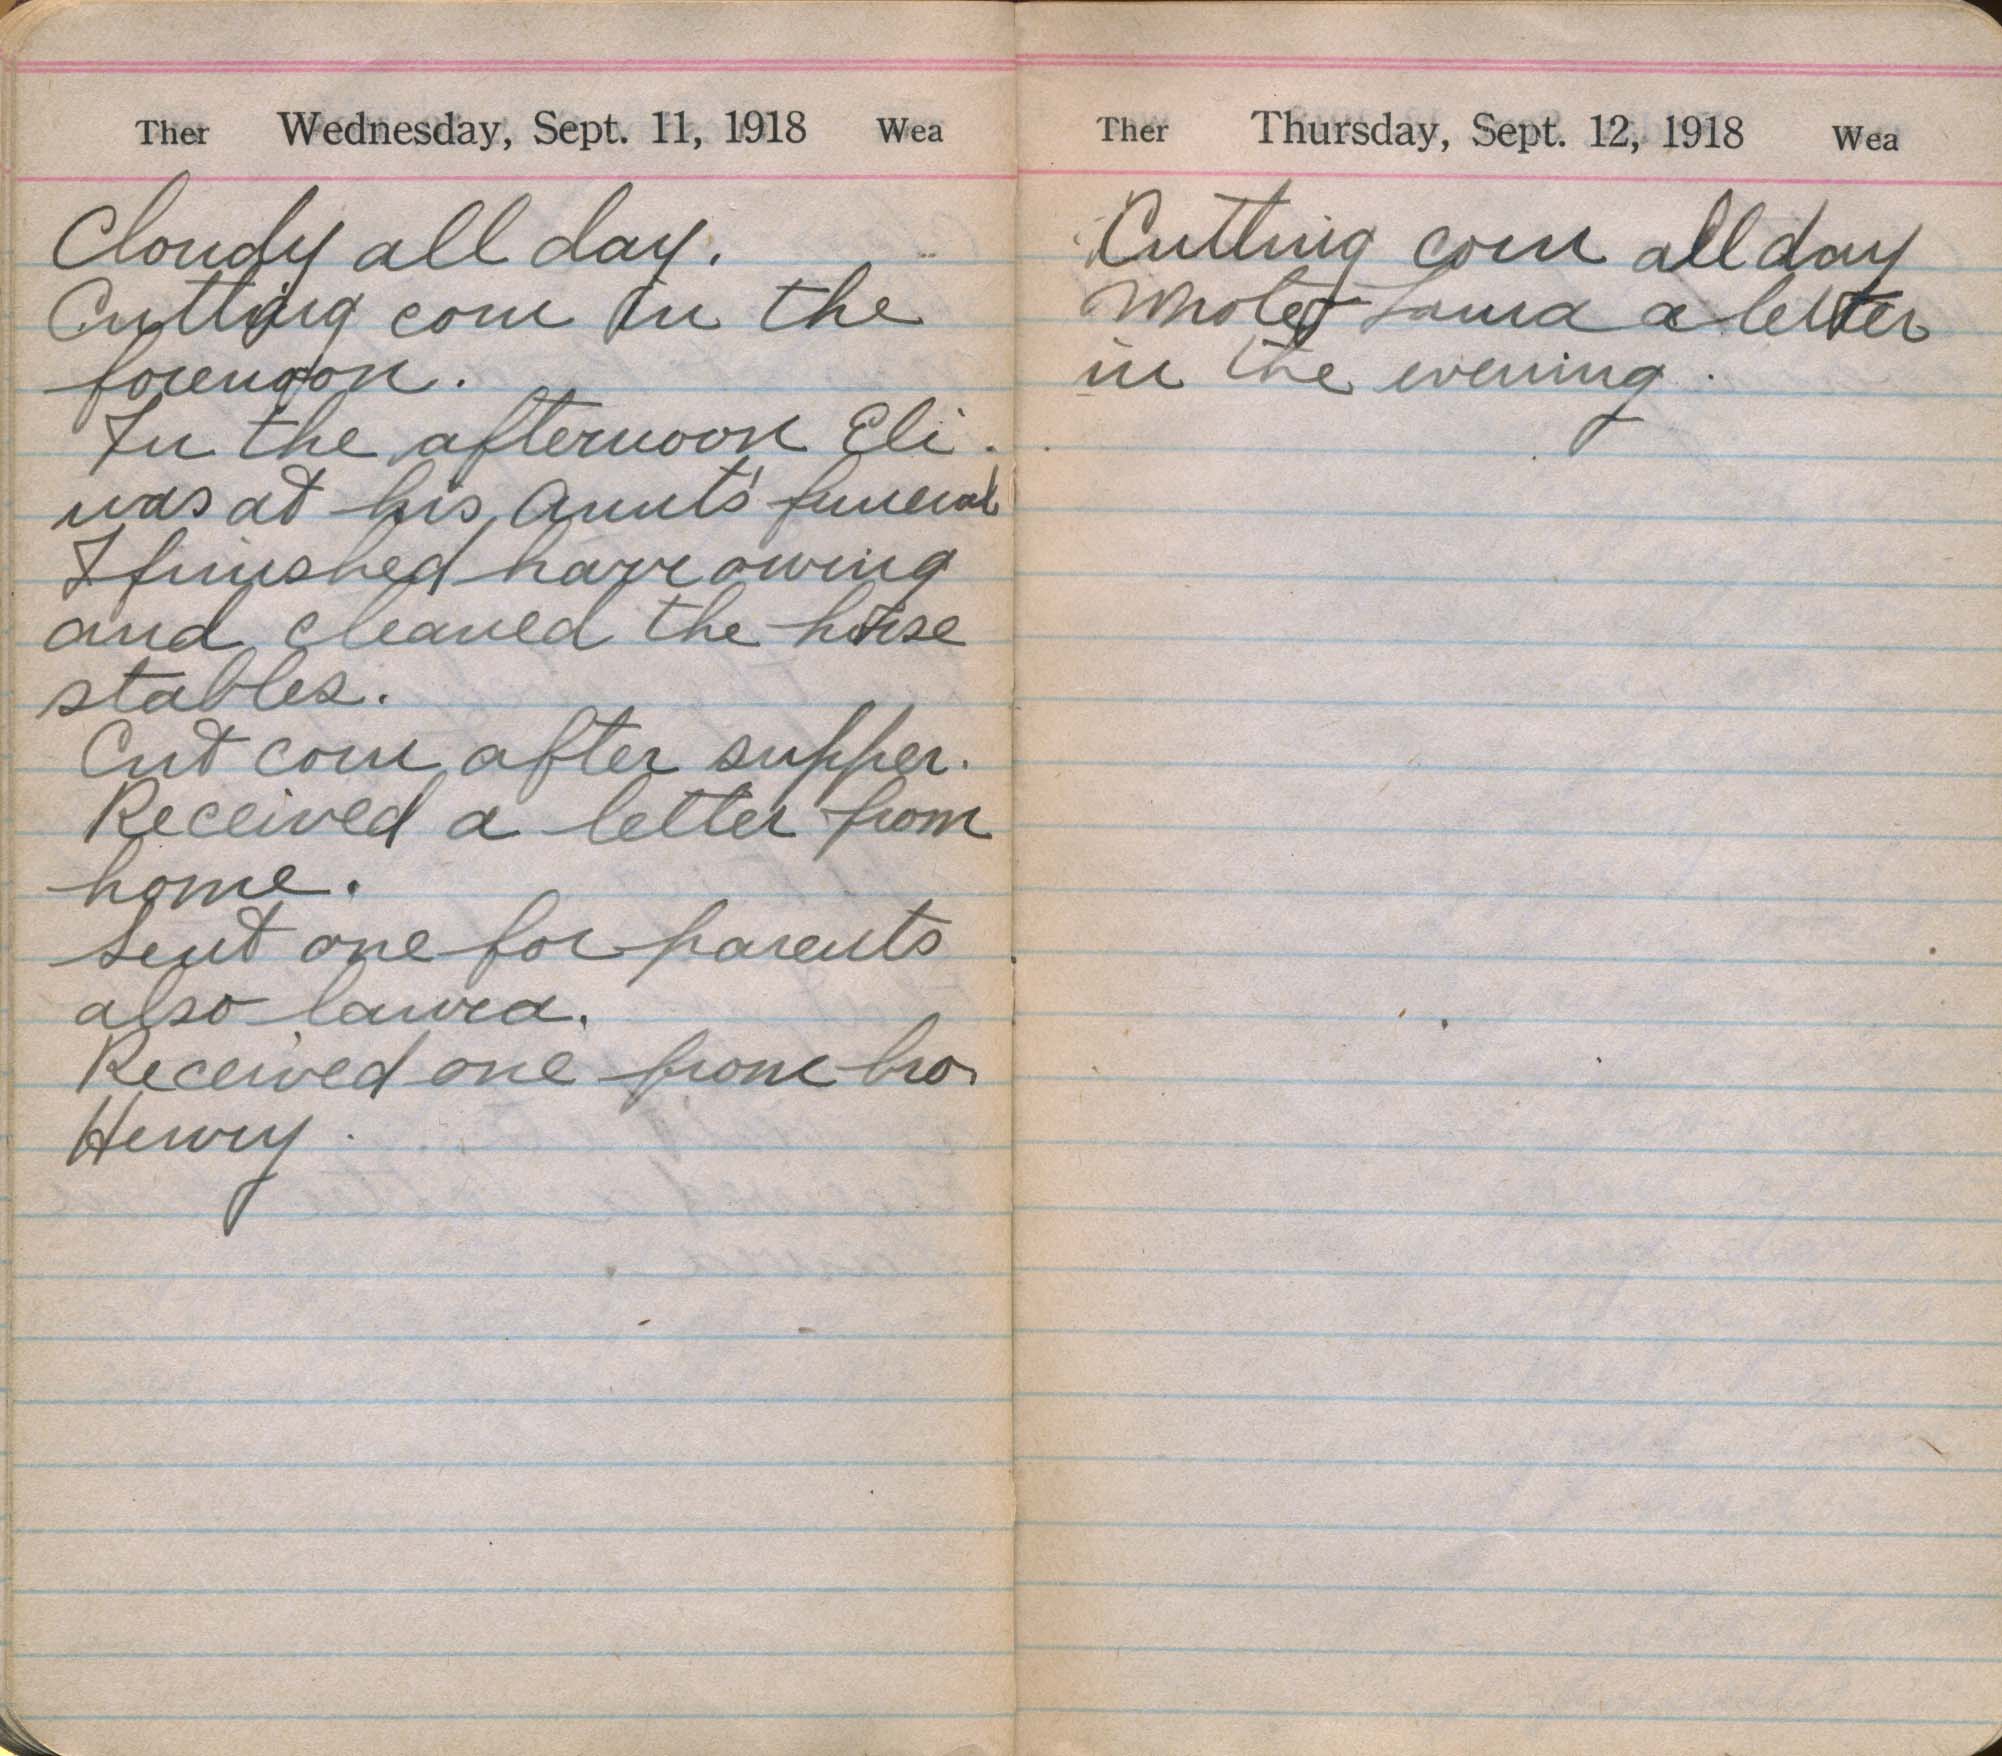 Ther Wednesday, Sept. 11, 1918 Wea
Cloudy all day.
Cutting corn in the
forenoon.
In the afternoon Eli
was at his Aunts' funeral
I finished harrowing
and cleaned the horse
stables.
Cut corn after supper.
Received a letter from
home.
Sent one for parents
also laura.
Received one from bro.
Henry.
Ther Thursday, Sept. 12, 1918 Wea
Cutting corn all day
Wrote Laura a letter
in the evening.